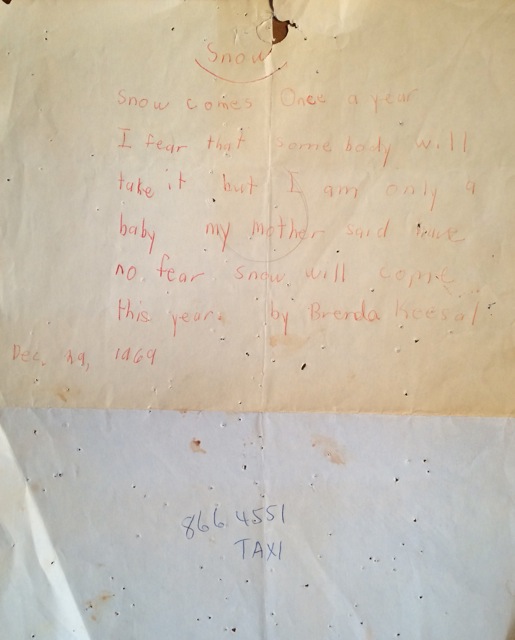 Snow
Snow comes Once a year
I fear that some body will
take it but I am only a
baby my mother said have
no fear snow will come
this year. by Brenda Keesal
Dec. 29, 1969
866 4551
TAXI